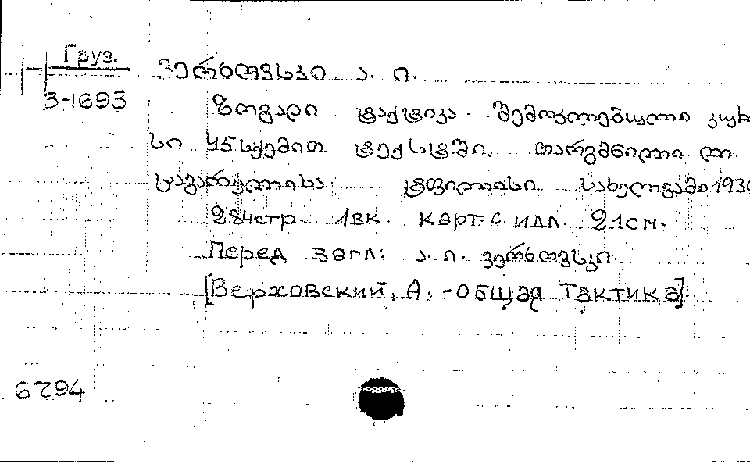 Груз.
ვერხოვსკი ა. ი.
3-1693
ზოგადი ტაქტიკა. შემოკლებული კურ
სი 45 სქემით ტექსტში. თარგმნილი
ტფილისი. სახელგამი 1930
284стр. 1вк. карт. с илл. 21см.
Перед загл: ა. ი. ვერხოვსკი
[Верховский, А. - Общая тактика]
6294